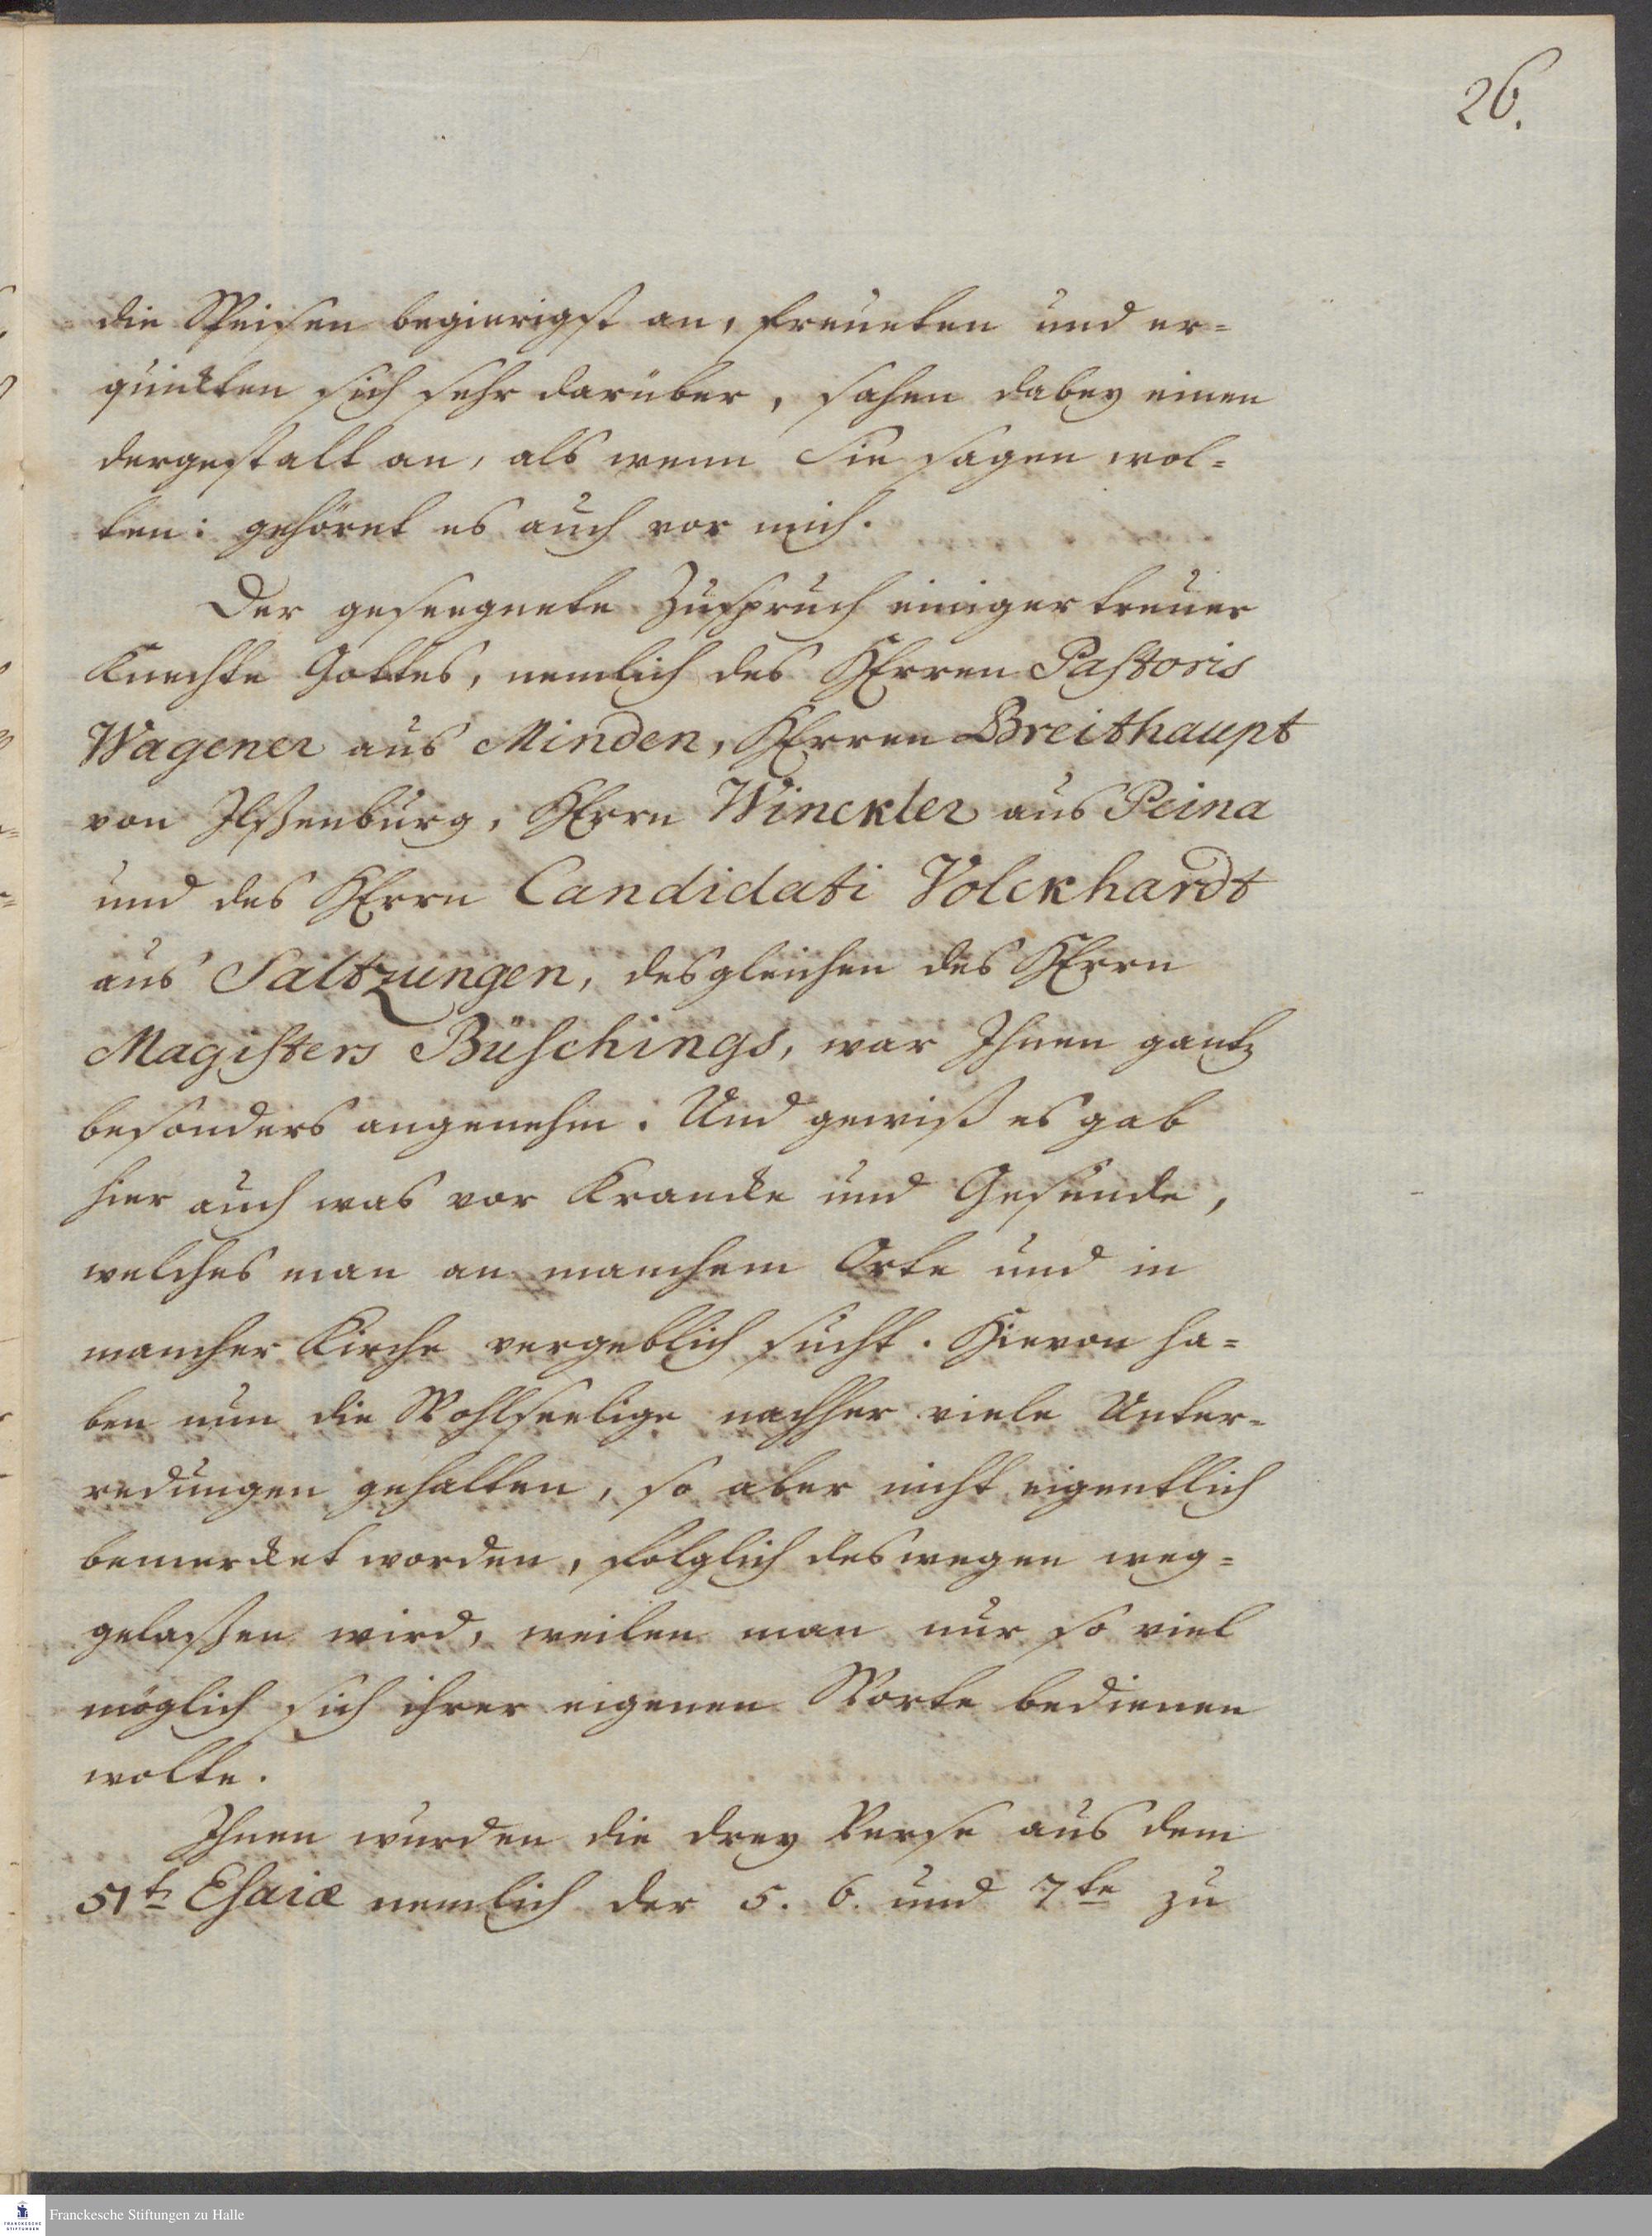 26.
die Speisen begierigst an, freueten und er=
quickten sich sehr darüber, sahen dabey einen
dergestalt an, als wenn Sie sagen wol=
ten: gehöret es auch vor mich.
Der geseegnete Zuspruch einiger treuer
Knechte Gottes, nemlich des HErren Pastoris
Wagener aus Minden, HErren Breithaupt
von Ilßenburg, HErrn Winckler aus Peina
und des HErrn Candidati Volckhardt
aus Saltzungen, desgleichen des HErrn
Magisters Büschings, war Ihnen gantz
besonders angenehm. Und gewiß es gab
hier auch was vor Krancke und Gesunde,
welches man an manchem Orte und in
mancher Kirche vergeblich sucht. Hievon ha=
ben nun die Wohlseelige nachher viele Unter=
redungen gehalten, so aber nicht eigentlich
bemercket worden, folglich deswegen weg=
gelaßen wird, weilen man nur so viel
möglich sich ihrer eigenen Worte bedienen
wolte.
Ihnen wurden die drey Verse aus dem
51t Esaiæ nemlich der 5. 6. und 7te zu
Franckesche Stiftungen zu Halle